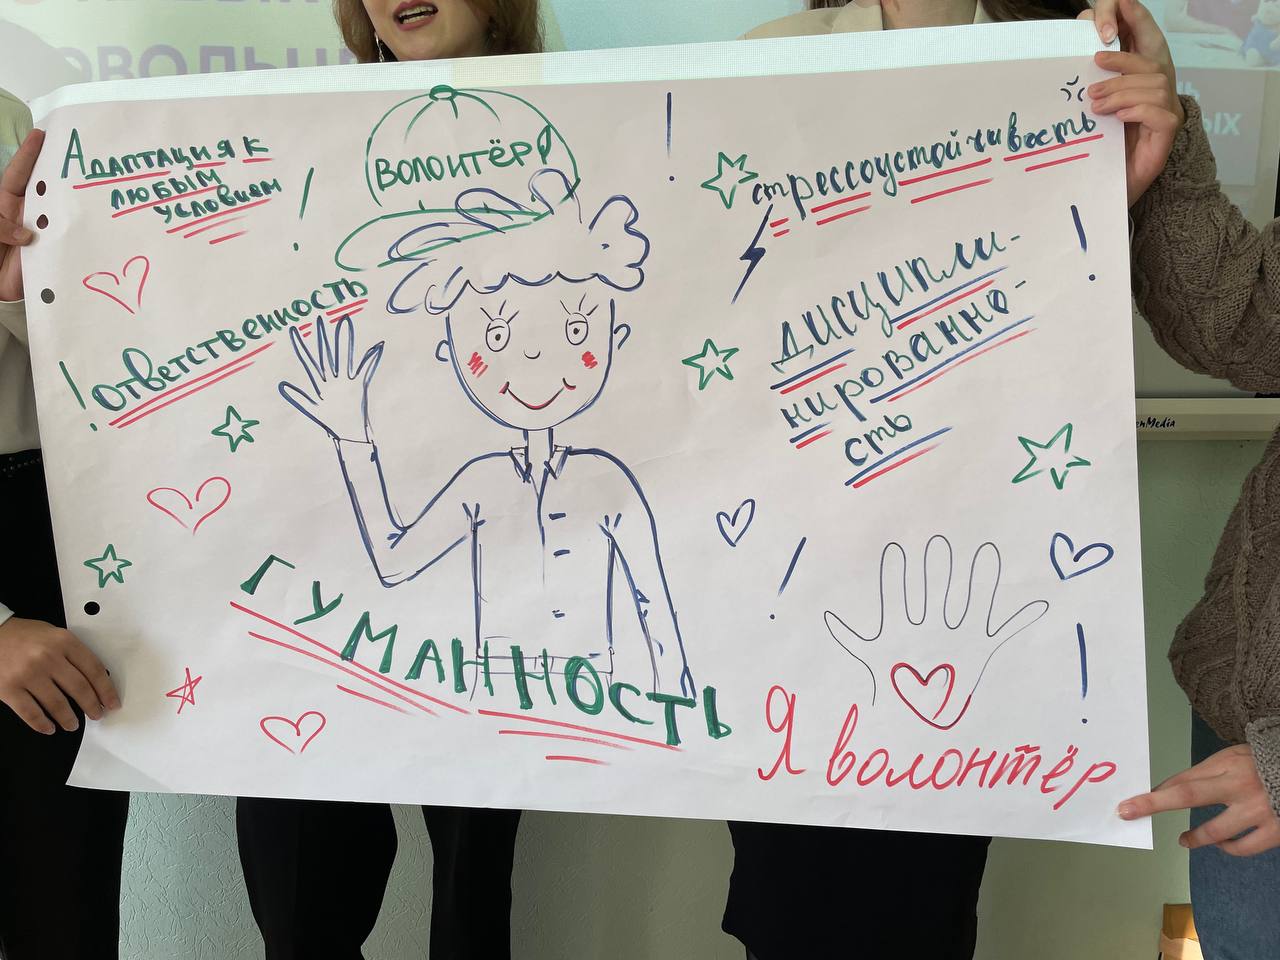 ОВОЛЬЦ
Адаптация к
любым
условиям
!
волонтёр
!
стрессоустойчивость
!
!ответственность
дисципли-
нированно-
сть
гуманность
!
!
Я волонтёр
enMedia